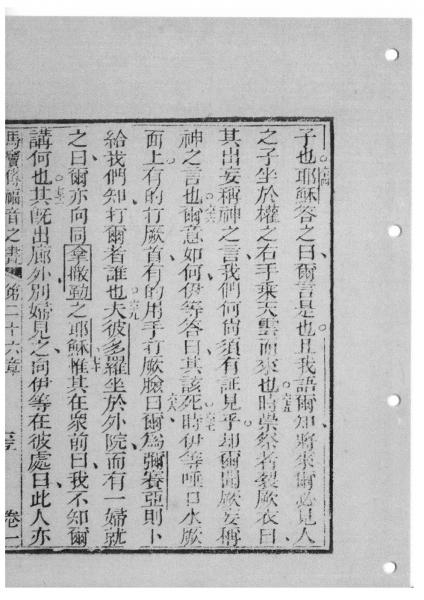 子也。六四耶穌答之曰、爾言是也。且我語爾知、將來爾必見人
之子坐於權之右手、乘天雲而來也。六五時崇祭者裂厥衣曰、
其出妄稱神之言、我們何尚須有証見乎、却爾聞厥妄稱
神之言也。六六爾意如何、伊等答曰、其該死。六七時伊等唾口水厥
面上、有的打厥首、有的用手打厥臉、六八曰、爾為彌賽亞、則卜
給我們知、打爾者誰也。六九夫彼多羅坐於外院、而有一婦就
之曰、爾亦向同拿撒勒之耶穌。七十惟其在眾前曰、我不知爾
講何也。七一其既出廊外、別婦見之、向伊等在彼處曰、此人亦
馬竇傳福音之書 第二十六章 卷一